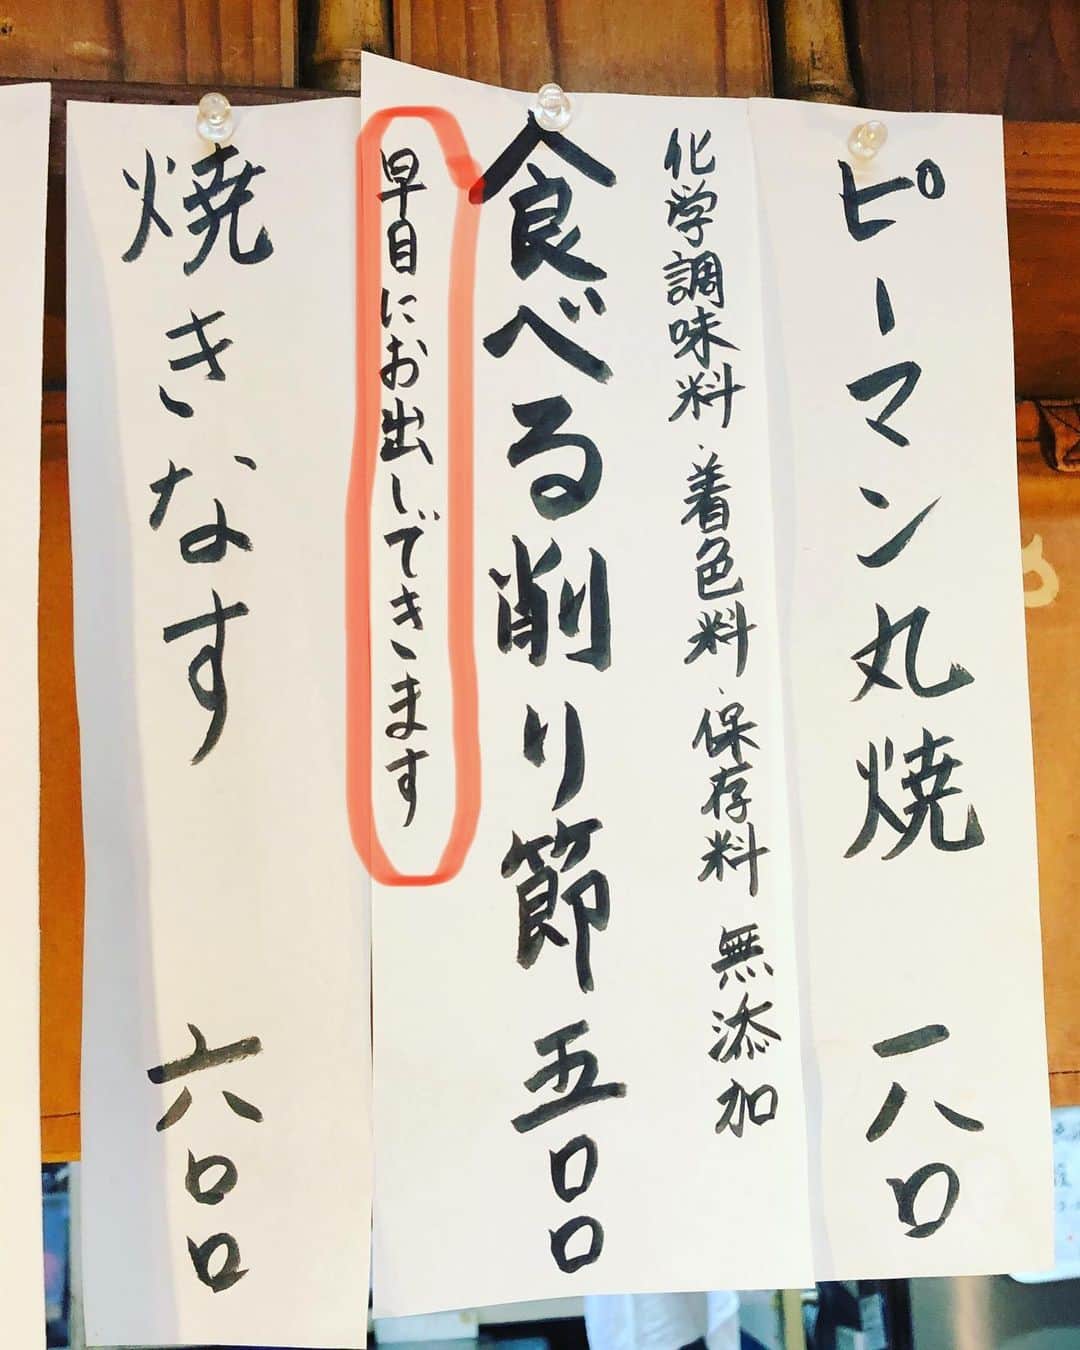 ピーマン丸焼 一八〇
化学調味料・着色料・保存料 無添加
食べる削り節 五〇〇
早目にお出しできます
焼きなす 六〇〇